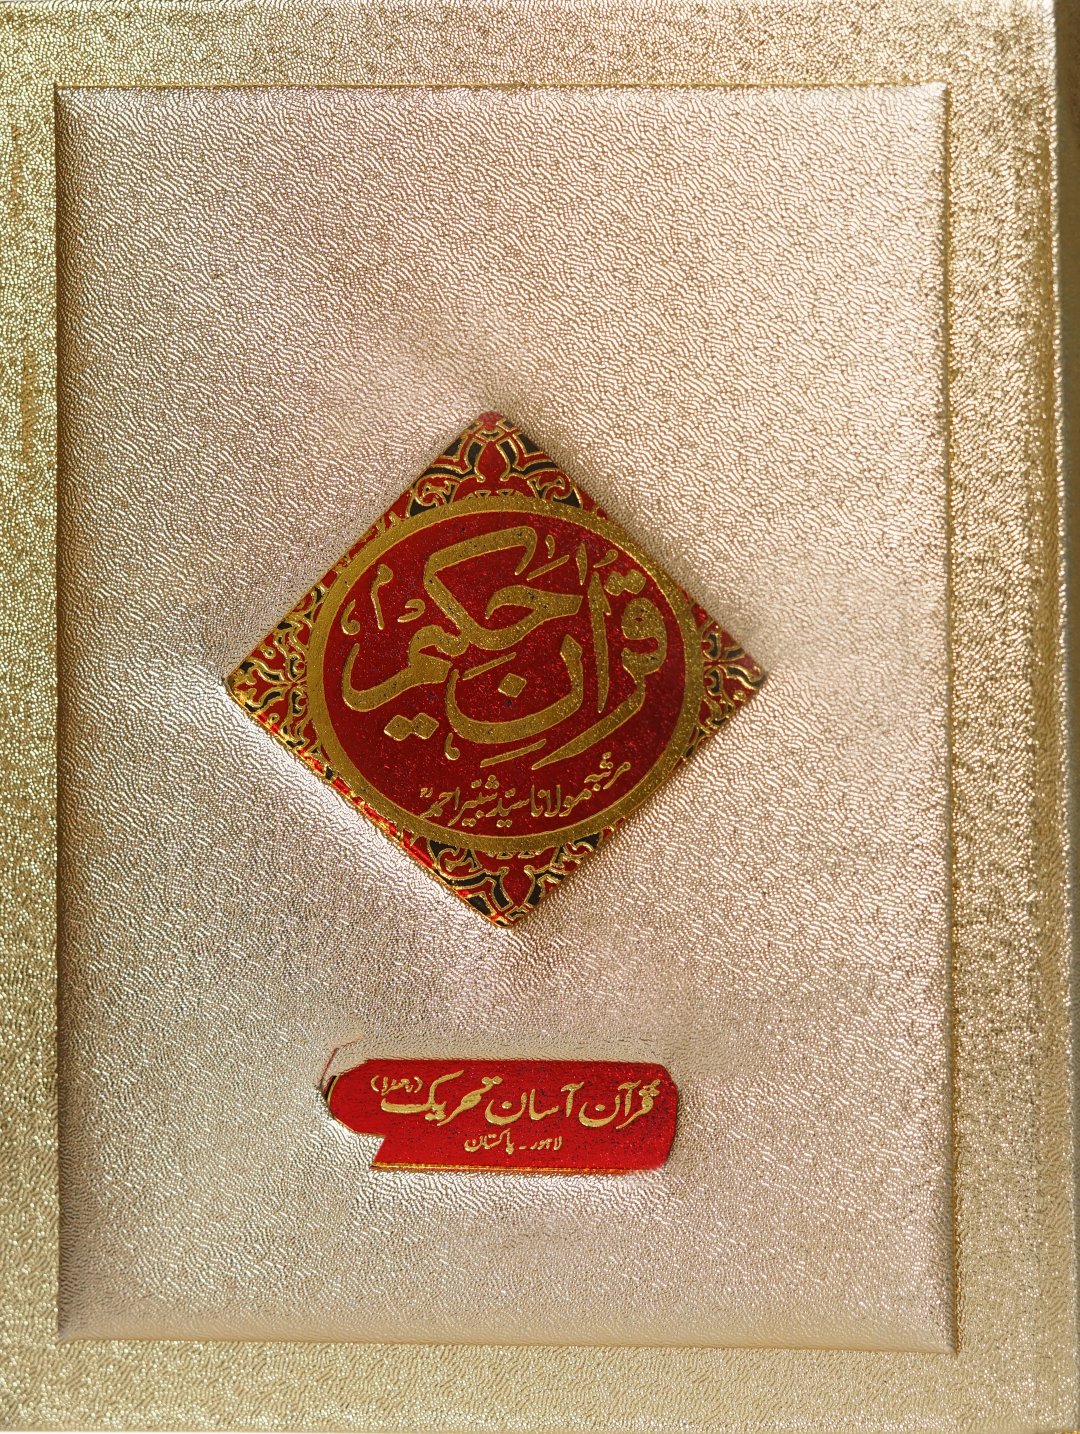 قرآنِ حکیم
مرتبہ مولانا سیّد شبّیر احمدؒ
قرآن آسان تحریک (رجسٹرڈ)
لاہور - پاکستان